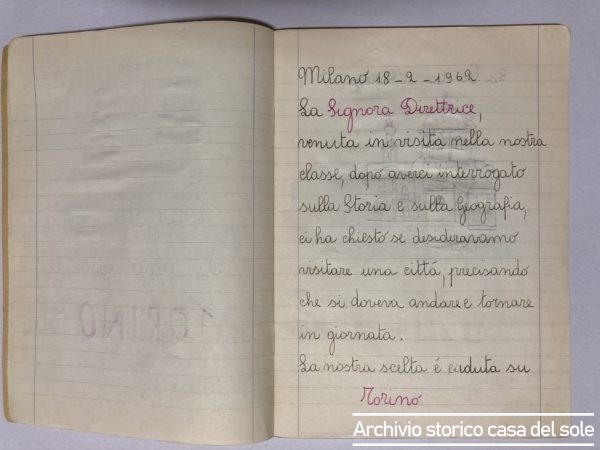 TORINO
Milano 18-2-1962.
La Signora Direttrice,
venuta in visita nella nostra
classe, dopo averci interrogato
sulla Storia e sulla Geografia,
ci ha chiesto se desideravamo
visitare una città, precisando
che si doveva andare e tornare
in giornata.
La nostra scelta é caduta su
Torino
Archivio storico casa del sole